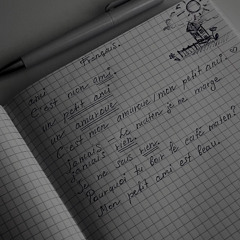 Français.
ami
C'est mon ami.
un petit ami
un amureux
C'est mon amureux/mon petit ami.
Jamais – Le maten je ne marge
jamais rien.
Je ne sous rien.
Pourquoi tu boir le café maten?
Mon petit ami est beau.